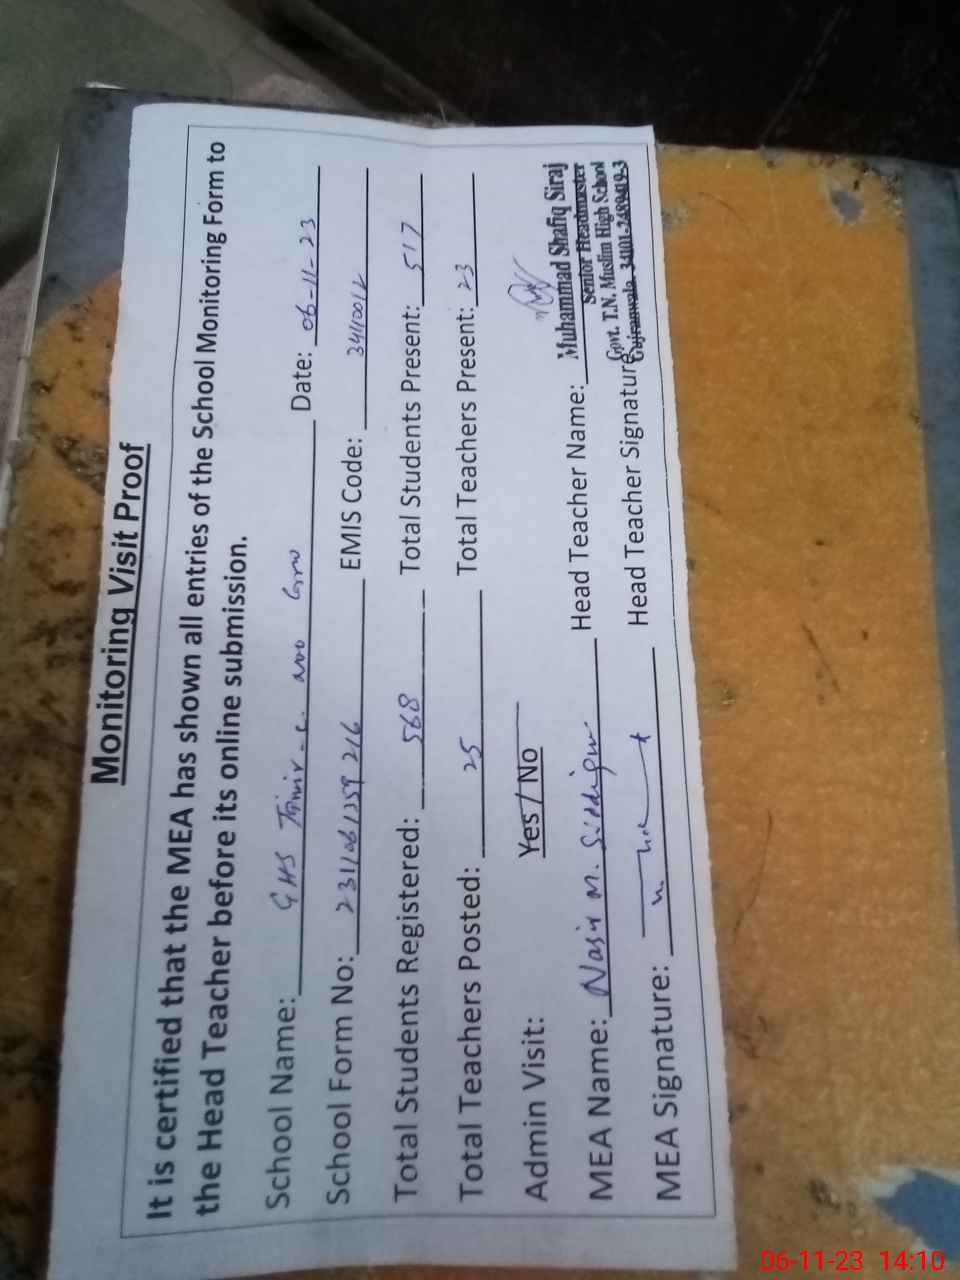 Monitoring Visit Proof
It is certified that the MEA has shown all entries of the School Monitoring Form to
the Head Teacher before its online submission.
School Name: GHS Date: 06-11-23
School Form No: 2311061359216 EMIS Code: 34110012
Total Students Registered: 568 Total Students Present: 517
Total Teachers Posted: 25 Total Teachers Present: 23
Admin Visit: Yes / No
MEA Name: Nasir M. Siddiqui Head Teacher Name: Muhammad Shafiq Siraj
Senior Headmaster
Govt. T.N. Muslim High School
MEA Signature: Head Teacher Signature
Gujranwala. 34101-2489419-3
06-11-23 14:10